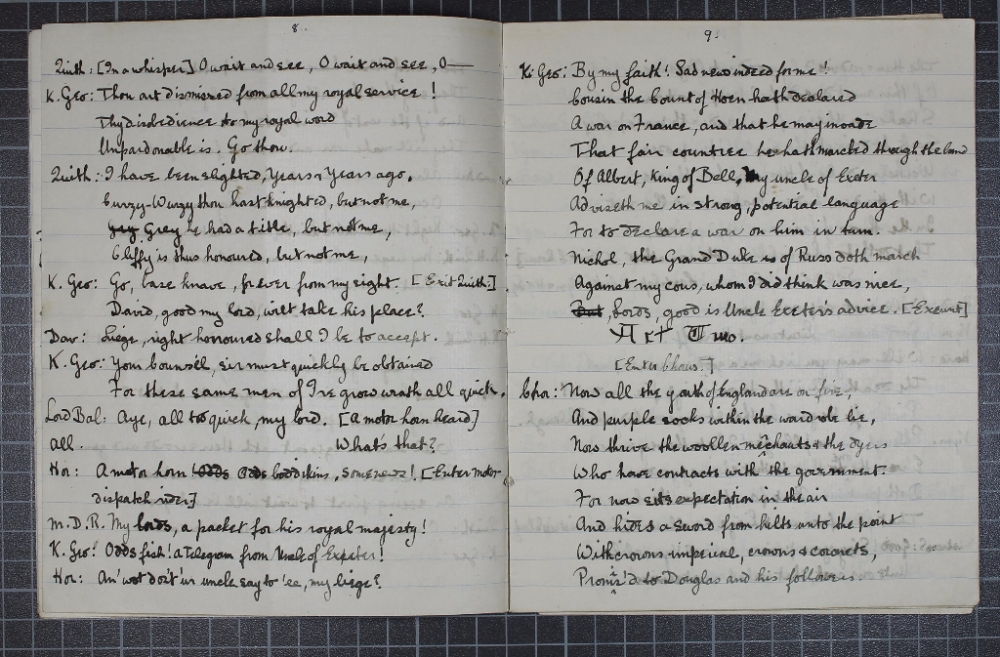 8.
Quith: [In a whisper] O wait and see, O wait and see, O—
K. Geo: Thou art dismissed from all my royal service!
Thy disobedience to my royal word
Unpardonable is. Go thou.
Quith: I have been slighted, years & years ago,
Curzy-Wurzy thou hast knighted, but not me,
Grey he had a title, but not me,
Cliffy is thus honoured, but not me,
K. Geo: Go, base knave, for ever from my sight. [Exit Quith:]
David, good my lord, wilt take his place?
Dav: Liege, right honoured shall I be to accept.
K. Geo: Your Counsel, sir must quickly be obtained
For these same men of Ire grow wrath all quick.
Lord Bal: Aye, all too quick, my lord. [a motor horn heard]
All. What's that?
Hor: A motor horn odds boddikins, [Enter motor
dispatch rider]
M.D.R. My lords, a packet for his royal majesty!
K. Geo: Odds fish! a telegram from Uncle of Exeter!
Hor: An' wot do't'ur uncle say to 'ee, my liege?
9.
K. Geo: By my faith! Sad news indeed for me!
Cousin the Count of Hoen hath declared
A war on France, and that he may invade
That fair countree he hath marched through the land
Of Albert, King of Bell, My uncle of Exeter
Adviseth me in strong, potential language
For to declare a war on him in turn.
Nichol, the Grand Duke is of Russ doth march
Against my cous, whom I did think was nice,
But, Lords, good is Uncle Exeter's advice. [Exeunt]
Act Two.
[Enter Chorus.]
Chor: Now all the youth of England are on fire,
And purple socks within the wardrobe lie,
Now thrive the woollen merchants & the dyers
Who have contracts with the government.
For now sits expectation in the air
And hides a sword from hilts unto the point
With crowns imperial, crowns & coronets,
Promis'd to Douglas and his followers